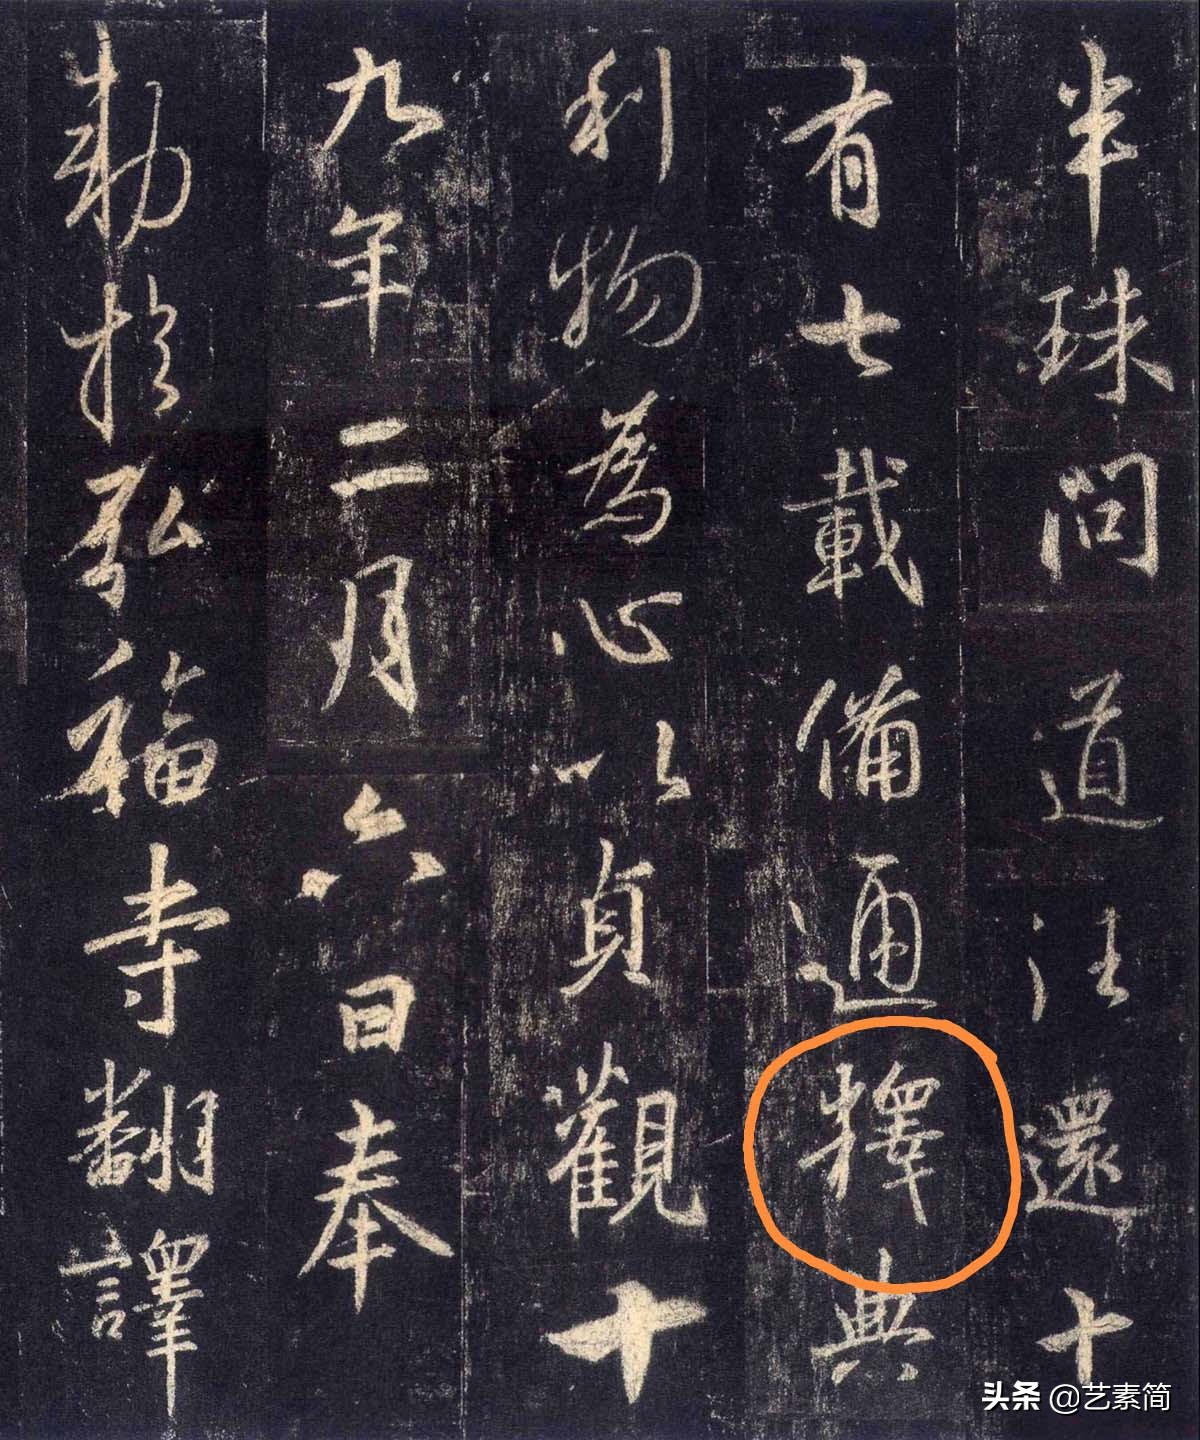 半珠問道往還十
有七載備通釋典
利物為心以貞觀十
九年二月六日奉
勅於弘福寺翻譯
头条 @艺素简